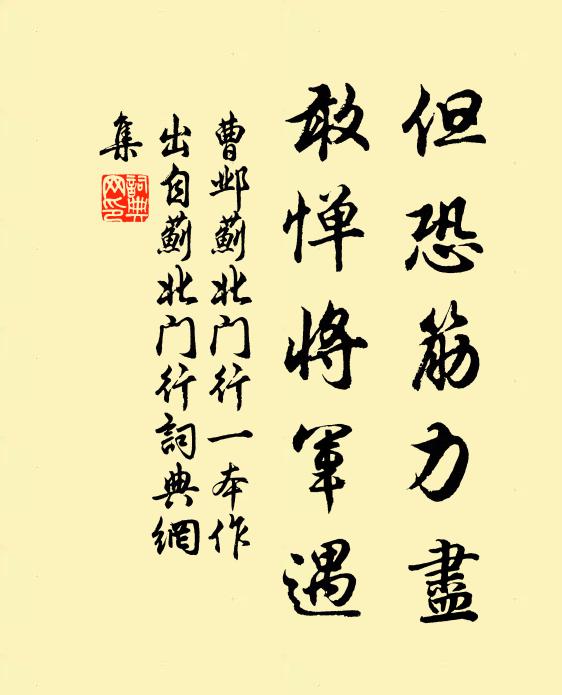 但恐筋力盡
敢惮将軍遇
曹邺薊北门行一本作
出自薊北门行詞典網
集
詞典
网印